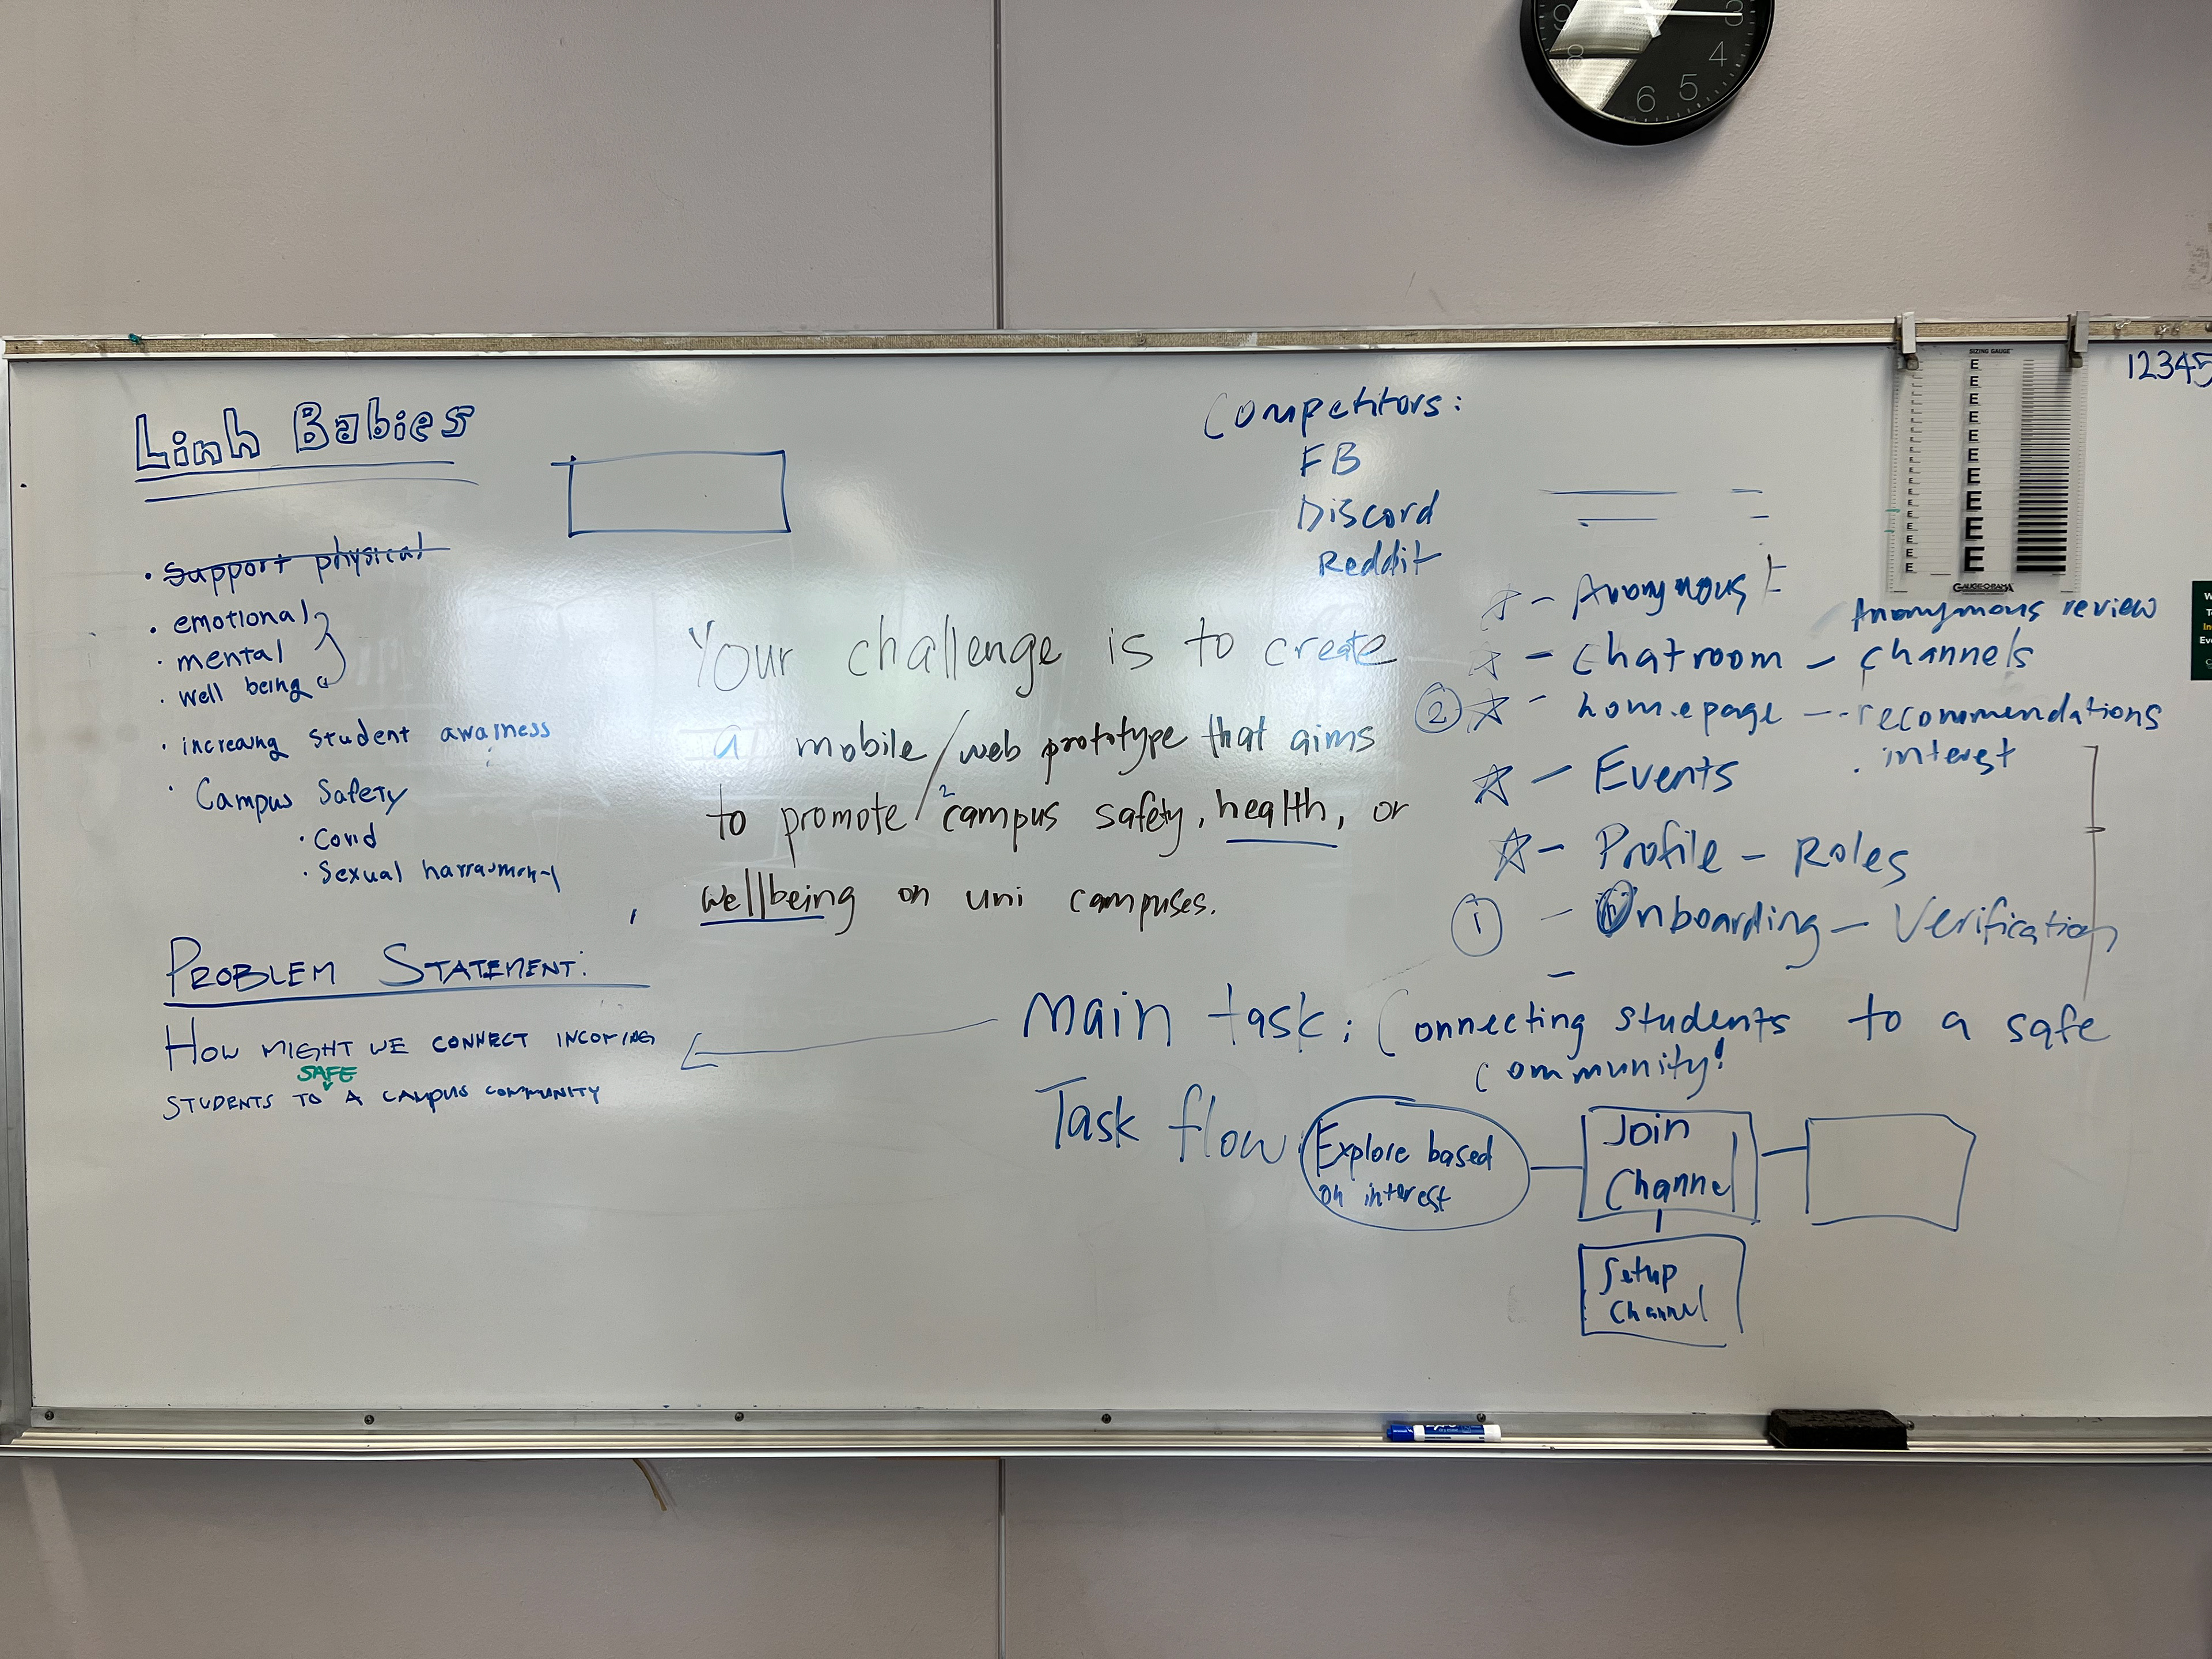 Linh Babies
· Support physical
· emotional
· mental
· well being
· increasing student awarness
· Campus Safety
· Covid
· Sexual harrasment
PROBLEM STATEMENT:
HOW MIGHT WE CONNECT INCOMING
SAFE
STUDENTS TO A CAMPUS COMMUNITY
Your challenge is to create
a mobile/web prototype that aims
to promote 2 campus safety, health, or
wellbeing on uni campuses.
Competitors:
FB
Discord
Reddit
- Anonymous
Anonymous review
- Chatroom - channels
2 - homepage - recommendations
interest
- Events
- Profile - Roles
1 - Onboarding - Verification
-
Main task: Connecting students to a safe
community!
Task flow:
Explore based
on interest
Join
Channel
Setup
Channel
12345
SIZING GAUGE
E
E
E
E
E
E
E
E
E
E
E
GAUGE-O-RAMA
9
8
3
4
5
6